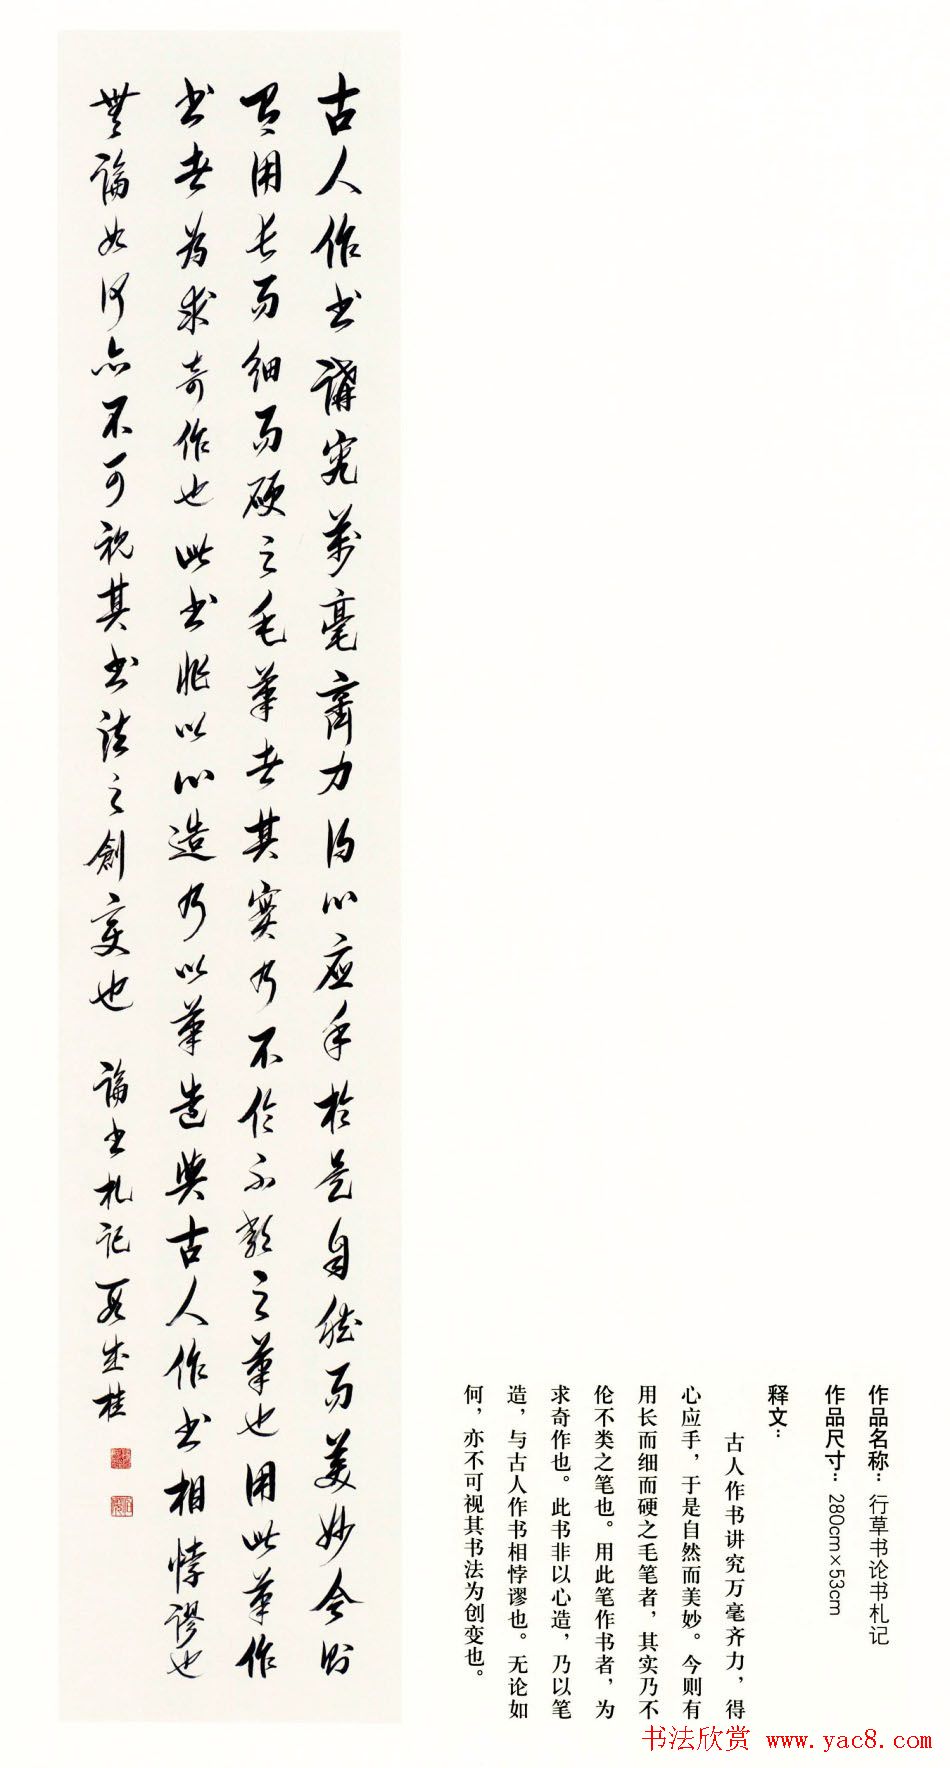 作品名称：行草书论书札记
作品尺寸：280cm×53cm
释文：
古人作书讲究万毫齐力，得
心应手，于是自然而美妙。今则有
用长而细而硬之毛笔者，其实乃不
伦不类之笔也。用此笔作书者，为
求奇作也。此书非以心造，乃以笔
造，与古人作书相悖谬也。无论如
何，亦不可视其书法为创变也。
古人作書講究萬毫齊力得心應手於是自然而美妙今則
有用長而細而硬之毛筆者其實乃不倫不類之筆也用此筆作
書者為求奇作也此書非以心造乃以筆造與古人作書相悖謬也
無論如何亦不可視其書法之創變也 論書札記 段成桂
书法欣赏 www.yac8.com